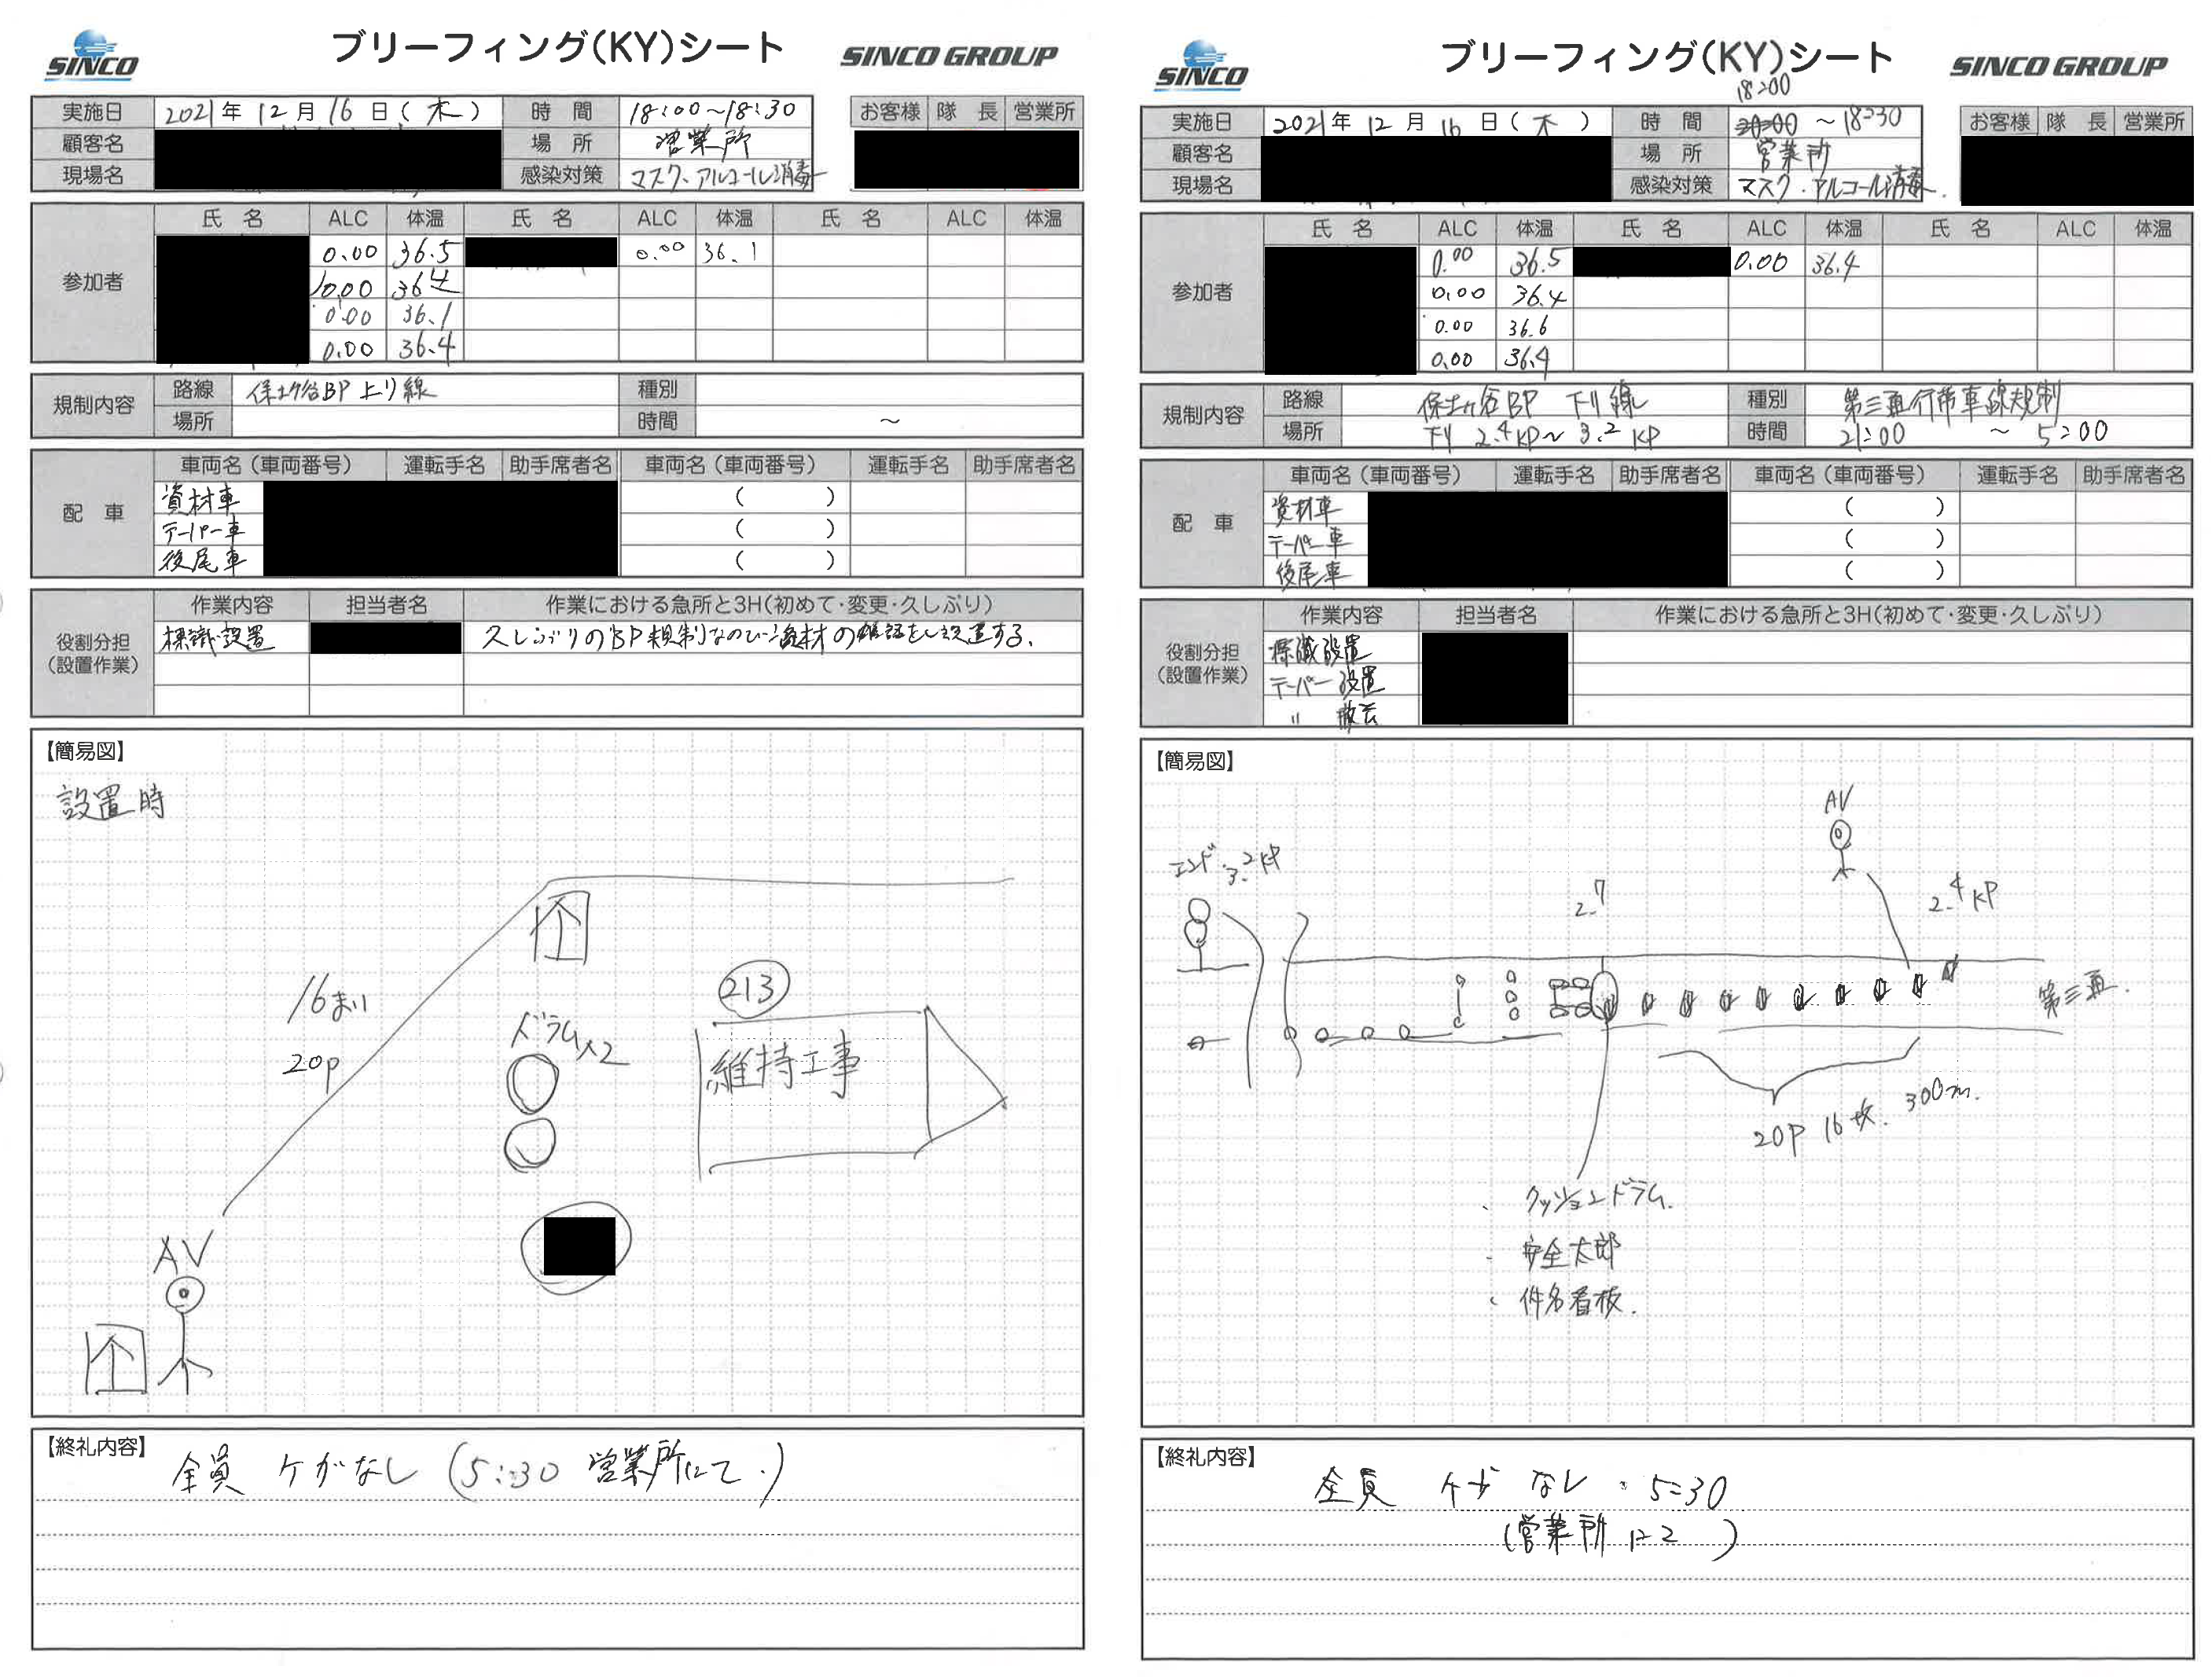 SINCO
ブリーフィング(KY)シート
SINCO GROUP
実施日 2021年 12月 16日(木) 時 間 18:00~18:30
お客様 隊 長 営業所
顧客名 場 所 営業所
現場名 感染対策 マスク、アルコール消毒
参加者
氏 名 ALC 体温 氏 名 ALC 体温 氏 名 ALC 体温
0.00 36.5 0.00 36.1
0.00 36.4
0.00 36.1
0.00 36.4
規制内容
路線 保土ケ谷BP上り線 種別
場所 時間 ~
配 車
車両名(車両番号) 運転手名 助手席者名 車両名(車両番号) 運転手名 助手席者名
資材車 ( )
テーパー車 ( )
後尾車 ( )
役割分担
(設置作業)
作業内容 担当者名 作業における急所と3H(初めて・変更・久しぶり)
標識設置 久しぶりのBP規制なので資材の確認をし設置する。
【簡易図】
設置時
16まい
20p
ドラム×2
213
維持工事
AV
【終礼内容】
全員 ケガなし (5:30 営業所にて.)
SINCO
ブリーフィング(KY)シート
SINCO GROUP
18:00
実施日 2021年 12月 16日(木) 時 間 20:00 ~18:30
お客様 隊 長 営業所
顧客名 場 所 営業所
現場名 感染対策 マスク・アルコール消毒.
参加者
氏 名 ALC 体温 氏 名 ALC 体温 氏 名 ALC 体温
0.00 36.5 0.00 36.4
0.00 36.4
0.00 36.6
0.00 36.4
規制内容
路線 保土ケ谷BP 下り線 種別 第三走行帯車線規制
場所 下り 2.4KP~3.2KP 時間 21:00 ~ 5:00
配 車
車両名(車両番号) 運転手名 助手席者名 車両名(車両番号) 運転手名 助手席者名
資材車 ( )
テーパー車 ( )
後尾車 ( )
役割分担
(設置作業)
作業内容 担当者名 作業における急所と3H(初めて・変更・久しぶり)
標識設置
テーパー設置
〃 撤去
【簡易図】
AV
エンド 3.2KP
2.7
2.4KP
20P 16枚. 300m.
・クッションドラム.
・安全太郎
・件名看板.
【終礼内容】
全員 ケガなし. 5:30
(営業所にて)